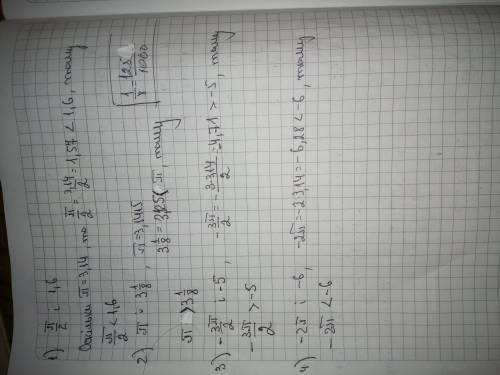 1) π/2 і 1,6
Оскільки π=3,14, то π/2 = 3,14/2 = 1,57 < 1,6, тому
π/2 < 1,6
2) π і 3 1/8, π=3,1415
1/8 = 125/1000
3 1/8 = 3,125 < π, тому
π > 3 1/8
3) -3π/2 і -5, -3π/2 = -3·3,14/2 = -4,71 > -5, тому
-3π/2 > -5
4) -2π і -6, -2π = -2·3,14 = -6,28 < -6, тому
-2π < -6